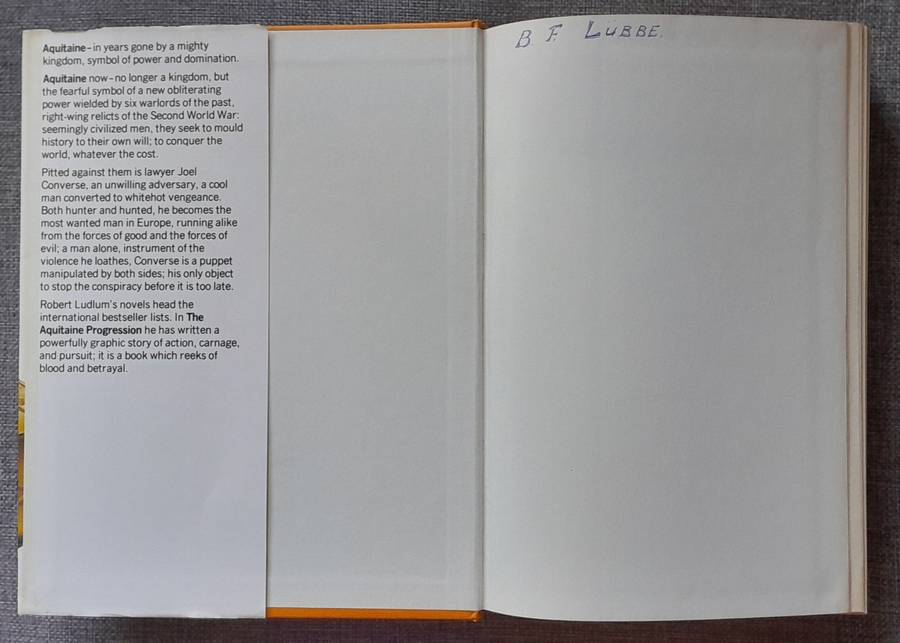 Aquitaine–in years gone by a mighty
kingdom, symbol of power and domination.
Aquitaine now–no longer a kingdom, but
the fearful symbol of a new obliterating
power wielded by six warlords of the past,
right-wing relicts of the Second World War:
seemingly civilized men, they seek to mould
history to their own will; to conquer the
world, whatever the cost.
Pitted against them is lawyer Joel
Converse, an unwilling adversary, a cool
man converted to whitehot vengeance.
Both hunter and hunted, he becomes the
most wanted man in Europe, running alike
from the forces of good and the forces of
evil; a man alone, instrument of the
violence he loathes, Converse is a puppet
manipulated by both sides; his only object
to stop the conspiracy before it is too late.
Robert Ludlum's novels head the
international bestseller lists. In The
Aquitaine Progression he has written a
powerfully graphic story of action, carnage,
and pursuit; it is a book which reeks of
blood and betrayal.
B. F. LUBBE.